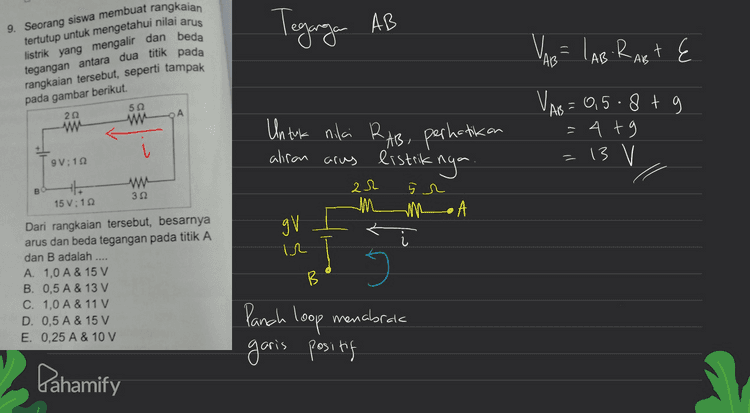 9. Seorang siswa membuat rangkaian
tertutup untuk mengetahui nilai arus
listrik yang mengalir dan beda
tegangan antara dua titik pada
rangkaian tersebut, seperti tampak
pada gambar berikut.
2 Ω
5 Ω
A
i
+
9 V ; 1 Ω
B
+
15 V ; 1 Ω
3 Ω
Dari rangkaian tersebut, besarnya
arus dan beda tegangan pada titik A
dan B adalah ....
A. 1,0 A & 15 V
B. 0,5 A & 13 V
C. 1,0 A & 11 V
D. 0,5 A & 15 V
E. 0,25 A & 10 V
Pahamify
Tegangan AB
Untuk nilai RAB, perhatikan
aliran arus listriknya.
2Ω 5Ω
A
9V
1Ω
i
B
Panah loop menabrak
garis positif
VAB = IAB.RAB + ε
VAB = 0,5 . 8 + 9
= 4 + 9
= 13 V